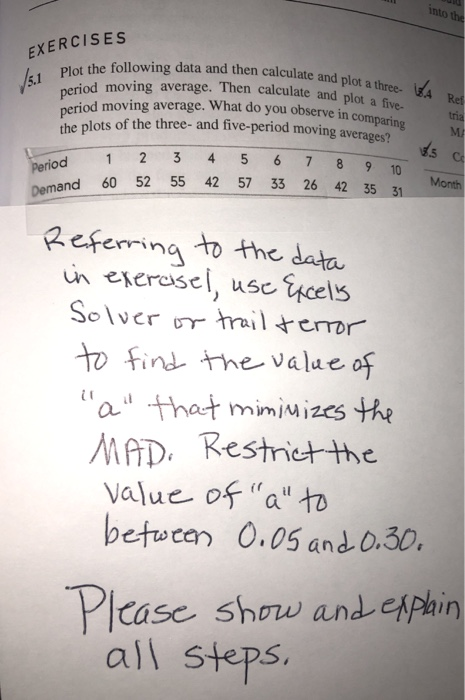 into the
EXERCISES
5.1 Plot the following data and then calculate and plot a three-
period moving average. Then calculate and plot a five-
period moving average. What do you observe in comparing
the plots of the three- and five-period moving averages?
Period 1 2 3 4 5 6 7 8 9 10
Demand 60 52 55 42 57 33 26 42 35 31
5.4 Ref
tria
MA
5.5 Co
Month
Referring to the data
in exercise1, use Excels
Solver or trail & error
to find the value of
"a" that mimimizes the
MAD. Restrict the
value of "a" to
between 0.05 and 0.30.
Please show and explain
all steps.